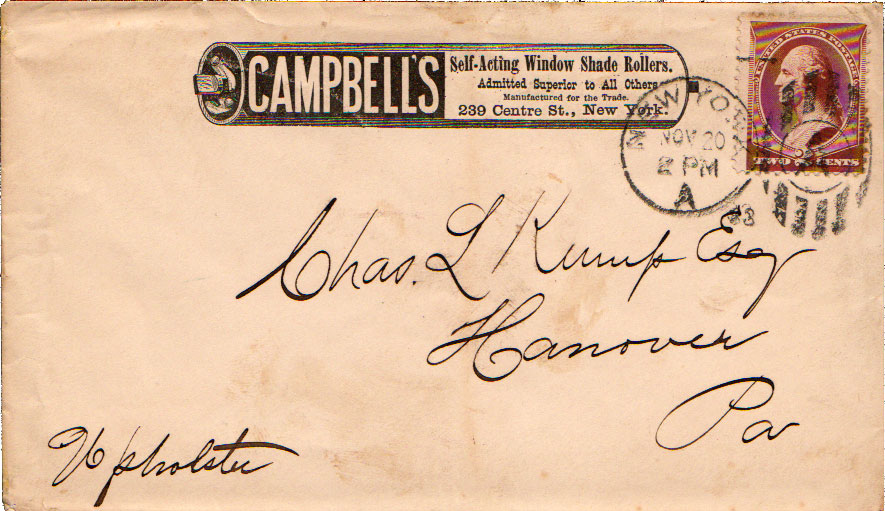 CAMPBELL'S
Self-Acting Window Shade Rollers.
Admitted Superior to All Others
Manufactured for the Trade.
239 Centre St., New York.
UNITED STATES POSTAGE
TWO CENTS
NEW YO
NOV 20
2 PM
A
83
Chas. L Rump Esq
Hanover
Pa
Upholster